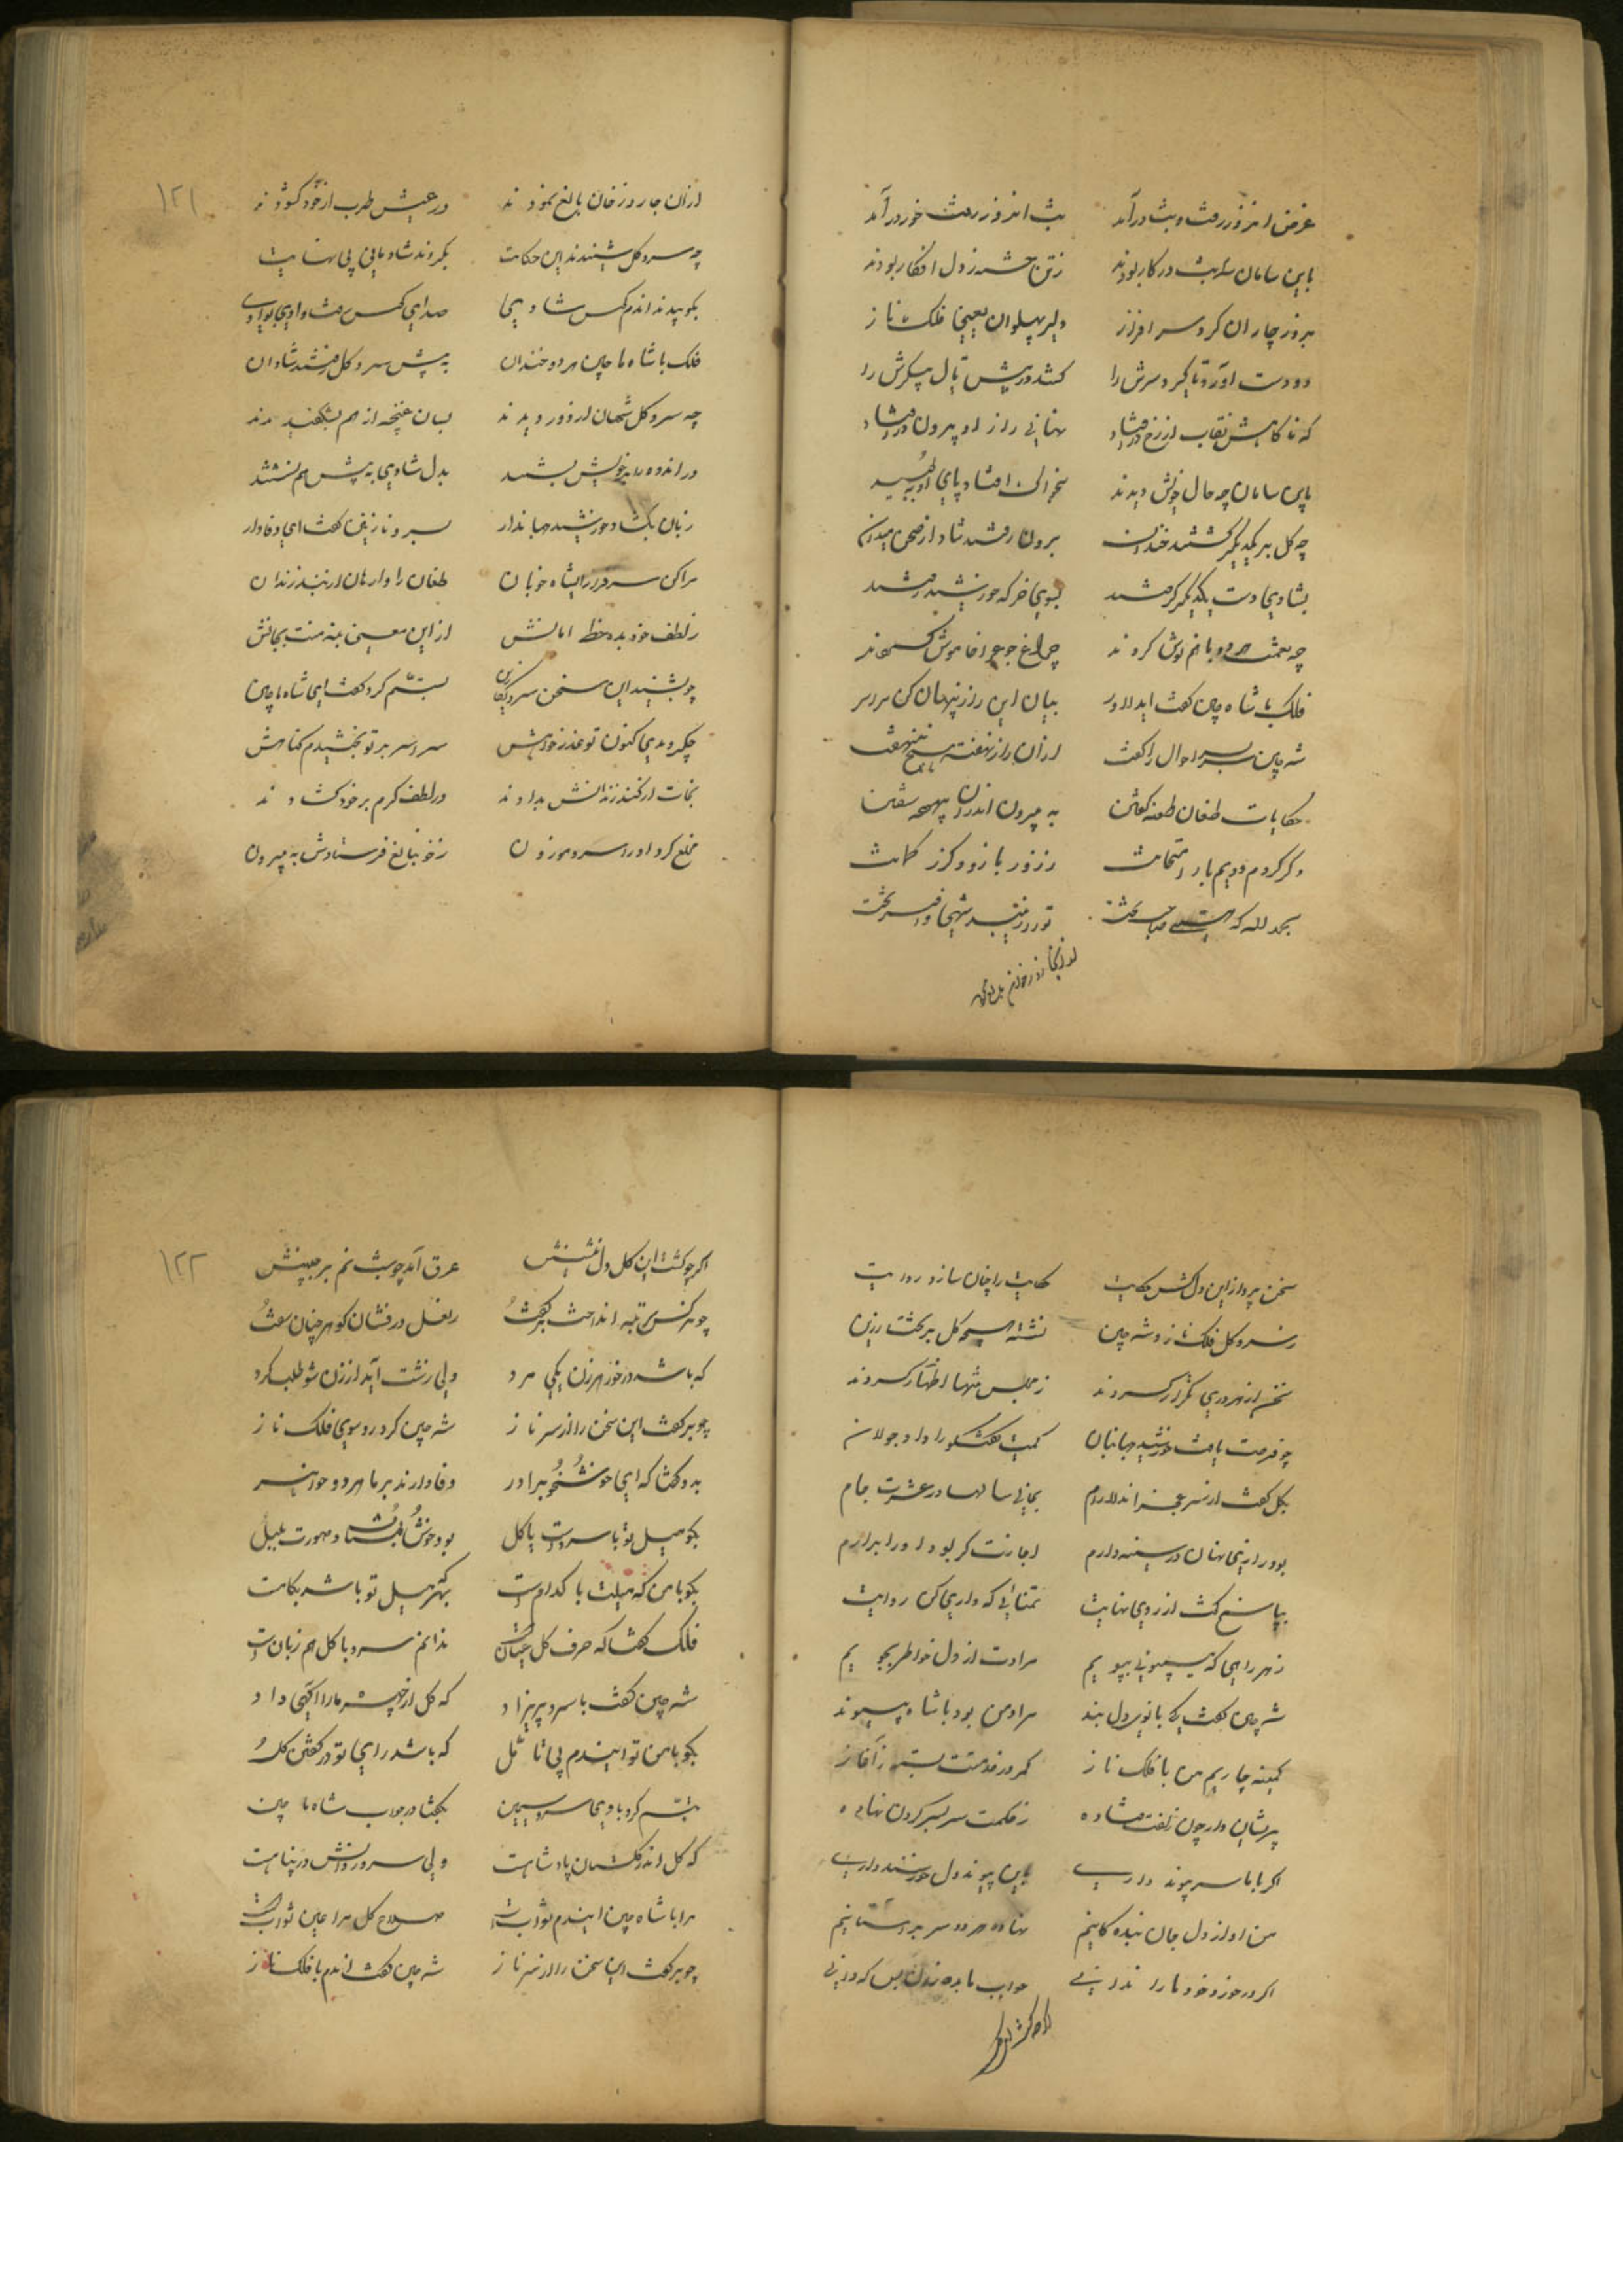 غرض انروز رفت و شب درآمد شب اندوز رفت خور درآمد
باین سامان سه شب در کار بودند ز تن خسته ز دل افکار بودند
بروز چاران کرد سر افراز دلیر پهلوان یعنی فلک ناز
دو دست آورد تا کیرد سرش را کشد در پیش تا پیکرش را
که ناکاهش نقاب از رخ در فتاد نهانی راز او بیرون در فتاد
باین سامان چه حال خویش دیدند
چه کل بر یکدیکر کشتند خندان برون رفتند شاد از صحن میدان
بشادی دست یکدیکر کرفتند بسوی خرکه خورشید رفتند
چه نعمت هر دو با هم نوش کردند چراغ جوع را خاموش کردند
فلک با شاه چین کفت ای دلاور بیان این راز پنهان کن سراسر
شه چین سربسر احوال را کفت از آن راز نهفته هیچ ننهفت
حکایات طغان طعنه کفتن به بیرون اندرون
دکر کردم دویم بار امتحانت ز زور بازو و کرز کمانت
بحمد لله که هستی صاحب تخت تو در زیبنده شهی و افسر تخت
از آن جا رو ز خان بالغ نمودند در عیش طرب از خود کشودند
چه سرو کل شنیدند این حکایت بکردند شادمانی بی نهایت
بکوبیدند اندم کوس شادی صدای کوس رفت وادی بوادی
فلک با شاه ماچین هر دو خندان به پیش سرو کل رفتند شادان
چه سرو کل شهان از دور دیدند بسان غنچه از هم بشکفیدند
در اندوه را بر خویش بستند بدل شادی به پیش هم نشستند
زبان بکشاد خورشید جهاندار بسرو نازنین کفت ای وفادار
مرا کن سرفراز ای شاه خوبان طغان را وارهان از بند زندان
ز لطف خود بده خط امانش از این معنی بنه منت بجانش
چو بشنید این سخن سرو تبسم کرد کفت ای شاه ماچین
چکردیدی کنون تو عذرخواهش سراسر بر تو بخشیدم کناهش
نجات از کند زندانش بدادند در لطف کرم بر خود کشادند
مخلع کرد او را سرو موزون ز خونبالغ فرستادش به بیرون
۱۲۱
سخن پرداز این دلکش حکایت حکایت را چنان سازد روایت
ز سرو کل فلک ناز و شه چین نشسته همچه کل بر تخت زرین
سخن از هر دری تکرار کردند ز مجلس متنها اظهار کردند
چو فرصت یافت خورشید جهانبان کمیت کفتکو را داد جولان
بکل کفت از سر عجز ای دلارام بمانی سالها در عشرت جام
بود رازی نهان در سینه دارم اجازت کر بود او را برآرم
بپاسخ کفت از روی نهایت تمنائی که داری کن روایت
ز هر راهی که میپوئی بپوییم مرادت از دل خواطر بجوییم
شه چین کفت کی بانوی دلبند مراد من بود با شاه پیوند
کمینه چاریم من با فلک ناز کمر در خدمتت بسته ز آغاز
پریشان وار چون زلفت فتاده ز حکمت سر بسر کردن نهاده
اکر با ما سر پیوند داری باین پیوند دل خورسند داری
من او از دل جان بنده کانیم نهاده هر دو سر بر آستانیم
اکر در خورد خود ما را ندانی جواب ما بده زود بس که دانی
اکر چو کشت این کل دل نشینش عرق آمد چو شبنم بر جبینش
چو نرکس سر به ته انداخت بر کفت ز لعل درفشان کوهر چنان سفت
که باشد در خور هر زن یکی مرد ولی زشت آید از زن شو طلب کرد
چو بر کفت این سخن را از سر ناز شه چین کرد رو سوی فلک ناز
به دو کفتا که ای خوشخو برادر وفادارند بر ما هر دو خواهر
بکو میل تو با سروست یا کل بود خوش و مهورت بلبل
بکو با من که میلت با کدام است بهر که میل تو باشد بکامت
فلک کفتا که حرف کل عیان است ندانم سرو با کل هم زبان است
شه چین کفت با سرو پریزاد که کل از چهره ما را آکهی داد
بکو با من تو ایندم بی تامل که باشد رای تو در کفتن کل
تبسم کرد با وی سرو سیمین بکفتا در جواب شاه ماچین
که کل اندر کلستان پادشاهست ولی سرو روانش در پناهست
مرا با شاه چین ایندم ثوابست صلاح کل مرا عین ثوابست
چو بر کفت این سخن را از سر ناز شه چین کفت اندم با فلک ناز
۱۲۲